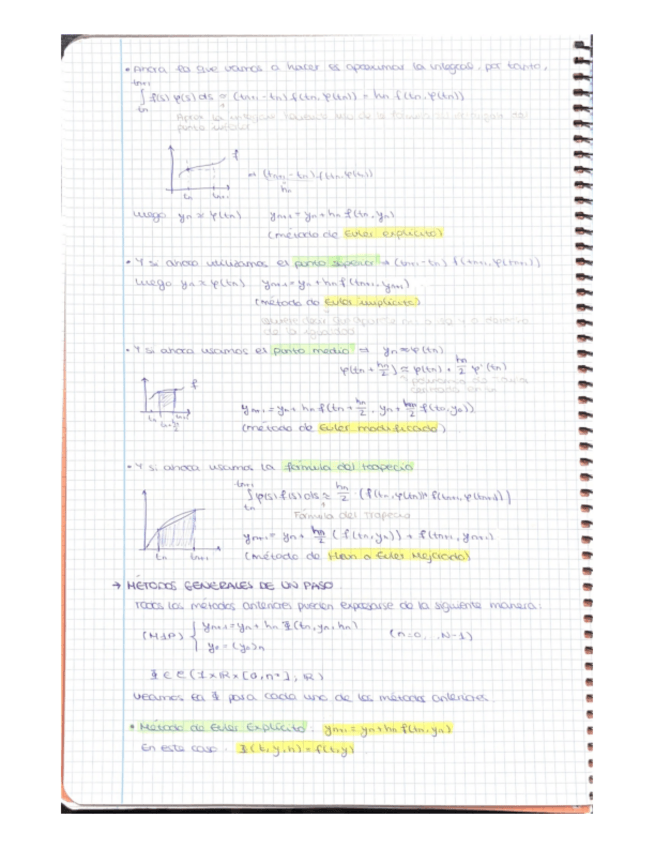 • Ahora lo que vamos a hacer es aproximar la integral, por tanto,
∫ f(s) φ(s) ds ≈ (tn+1 - tn) f(tn, φ(tn)) = hn f(tn, φ(tn))
tn+1
tn
punto
f
⇒ (tn+1 - tn) f(tn, φ(tn))
hn
tn tn+1
Luego yn ≈ φ(tn) yn+1 = yn + hn f(tn, yn)
(método de Euler explícito)
• Y si ahora utilizamos el punto superior → (tn+1 - tn) f(tn+1, φ(tn+1))
Luego yn ≈ φ(tn) yn+1 = yn + hn f(tn+1, yn+1)
(método de Euler implícito)
de la igualdad
• Y si ahora usamos el punto medio ⇒ yn ≈ φ(tn)
φ(tn + hn/2) ≈ φ(tn) + hn/2 φ'(tn)
polinomio de
f
yn+1 = yn + hn f(tn + hn/2, yn + hn/2 f(tn, yn))
(método de Euler modificado)
• Y si ahora usamos la fórmula del trapecio
∫ φ(s) f(s) ds ≈ hn/2 (f(tn, φ(tn)) + f(tn+1, φ(tn+1)))
tn+1
tn
Fórmula del trapecio
yn+1 = yn + hn/2 (f(tn, yn)) + f(tn+1, yn+1)
tn tn+1
(método de Heun o Euler Mejorado)
→ MÉTODOS GENERALES DE UN PASO
Todos los métodos anteriores pueden expresarse de la siguiente manera:
(M1P) { yn+1 = yn + hn Φ(tn, yn, hn) (n=0, ..N-1)
y0 = (y0)n
Φ ∈ C(I×ℝ×[0,h*], ℝ)
Veamos la Φ para cada uno de los métodos anteriores.
• Método de Euler Explícito: yn+1 = yn + hn f(tn, yn)
En este caso: Φ(t,y,h) = f(t,y)